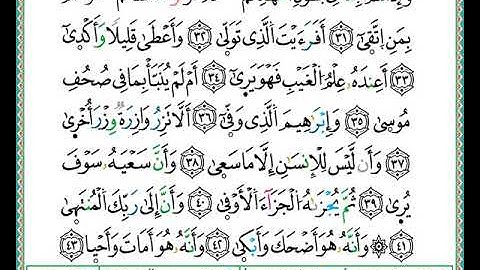 بِمَنِ ٱتَّقَىٰٓ ٣١ أَفَرَءَيْتَ ٱلَّذِى تَوَلَّىٰ ٣٢ وَأَعْطَىٰ قَلِيلًا وَأَكْدَىٰٓ
٣٣ أَعِندَهُۥ عِلْمُ ٱلْغَيْبِ فَهُوَ يَرَىٰٓ ٣٤ أَمْ لَمْ يُنَبَّأْ بِمَا فِى صُحُفِ
مُوسَىٰ ٣٥ وَإِبْرَٰهِيمَ ٱلَّذِى وَفَّىٰٓ ٣٦ أَلَّا تَزِرُ وَازِرَةٌ وِزْرَ أُخْرَىٰ
٣٧ وَأَن لَّيْسَ لِلْإِنسَٰنِ إِلَّا مَا سَعَىٰ ٣٨ وَأَنَّ سَعْيَهُۥ سَوْفَ
يُرَىٰ ٣٩ ثُمَّ يُجْزَىٰهُ ٱلْجَزَآءَ ٱلْأَوْفَىٰ ٤٠ وَأَنَّ إِلَىٰ رَبِّكَ ٱلْمُنتَهَىٰ
٤١ وَأَنَّهُۥ هُوَ أَضْحَكَ وَأَبْكَىٰ ٤٢ وَأَنَّهُۥ هُوَ أَمَاتَ وَأَحْيَا ٤٣